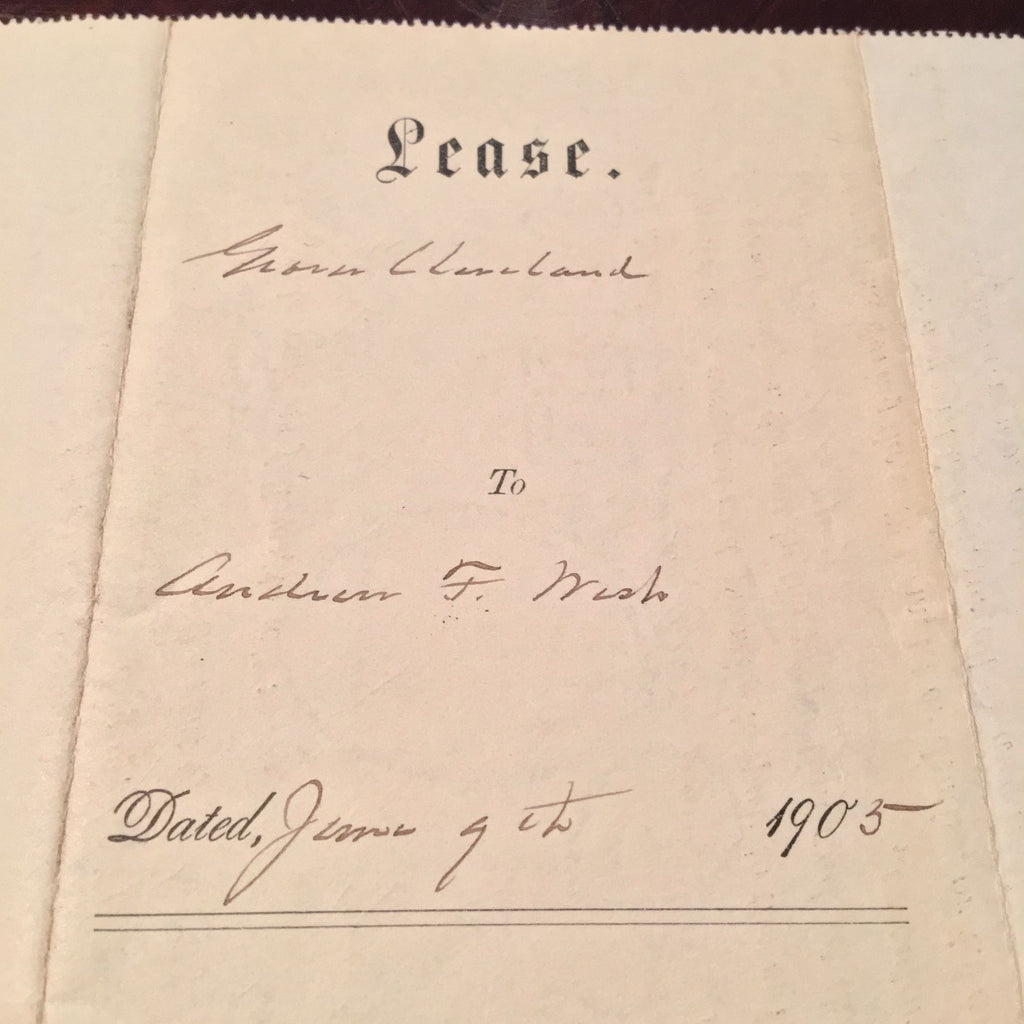 Lease.
Grover Cleveland
To
Andrew F. West
Dated, June 9th 1905